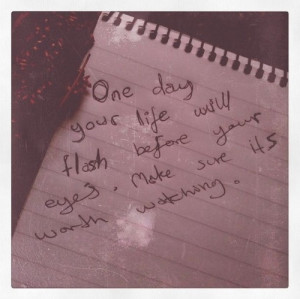 "One day
your life will
flash before your
eyes. Make sure its
worth watching.